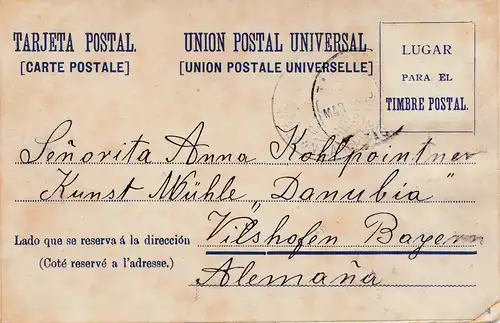 TARJETA POSTAL.
[CARTE POSTALE]
UNION POSTAL UNIVERSAL
[UNION POSTALE UNIVERSELLE]
LUGAR
PARA EL
TIMBRE POSTAL.
MAR
Señorita Anna Kohlpointner
Kunst Mühle „Danubia"
Lado que se reserva á la dirección
(Coté reservé a l'adresse.)
Vilshofen Bayern
Alemaña